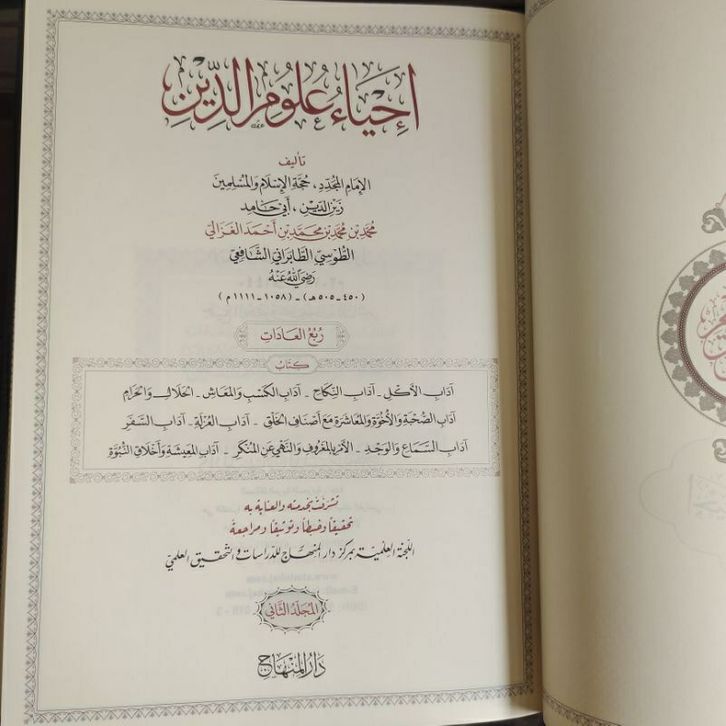 إِحْيَاءُ عُلُومِ الدِّيْنِ
تأليف
الإِمَامِ المُجَدِّدِ، حُجَّةِ الإِسْلَامِ وَالمُسْلِمِينَ
زَيْنِ الدِّينِ، أَبِي حَامِدٍ
مُحَمَّدِ بْنِ مُحَمَّدِ بْنِ مُحَمَّدِ بْنِ أَحْمَدَ الغَزَالِيِّ
الطُّوسِيِّ الطَّابَرَانِيِّ الشَّافِعِيِّ
رَضِيَ اللَّهُ عَنْهُ
(٤٥٠-٥٠٥هـ) - (١٠٥٨-١١١١م)
رُبُعُ العَادَاتِ
كِتَابُ
آدَابِ الأَكْلِ - آدَابِ النِّكَاحِ - آدَابِ الكَسْبِ وَالمَعَاشِ - الحَلَالِ وَالحَرَامِ
آدَابِ الصُّحْبَةِ وَالأُخُوَّةِ وَالمُعَاشَرَةِ مَعَ أَصْنَافِ الخَلْقِ - آدَابِ العُزْلَةِ - آدَابِ السَّفَرِ
آدَابِ السَّمَاعِ وَالوَجْدِ - الأَمْرِ بِالمَعْرُوفِ وَالنَّهْيِ عَنِ المُنْكَرِ - آدَابِ المَعِيشَةِ وَأَخْلَاقِ النُّبُوَّةِ
تشرفت بخدمته والعناية به
تحقيقاً وضبطاً وتوثيقاً ومراجعة
اللجنة العلمية بمركز دار المنهاج للدراسات والتحقيق العلمي
المُجَلَّدُ الثَّانِي
دَارُ المِنْهَاجِ